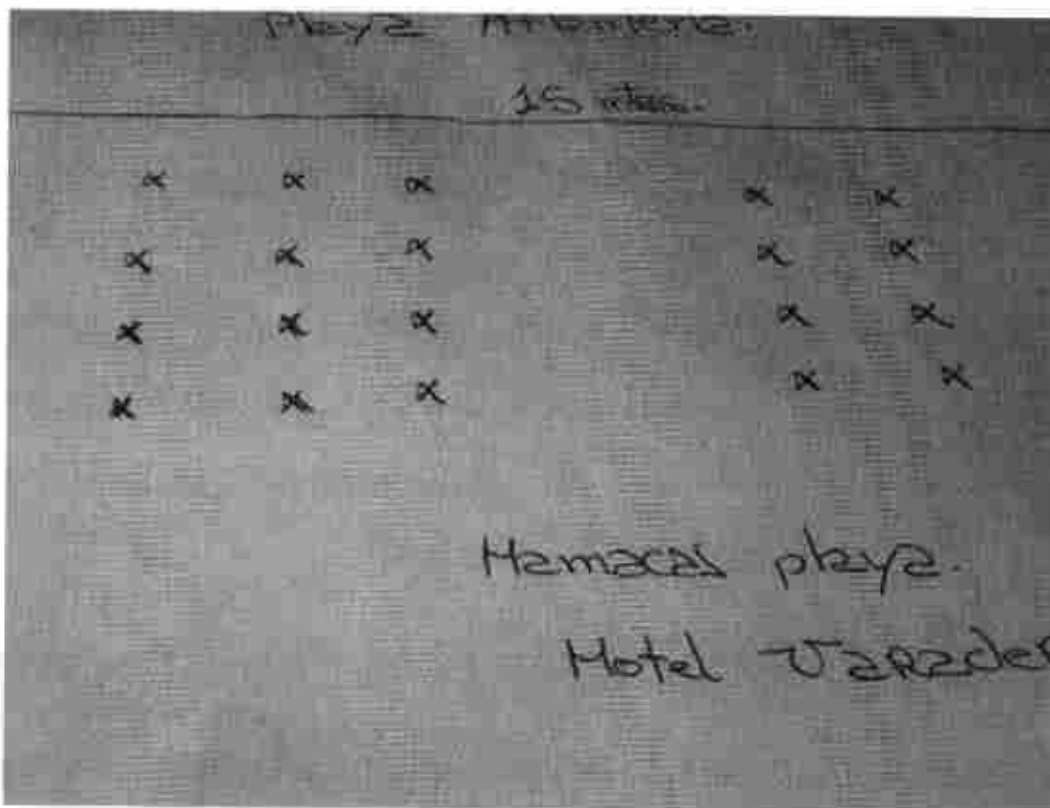 Playa
15 mtrs.
x x x x x
x x x x x
x x x x x
x x x x x
Hamacas playa.
Hotel Varader